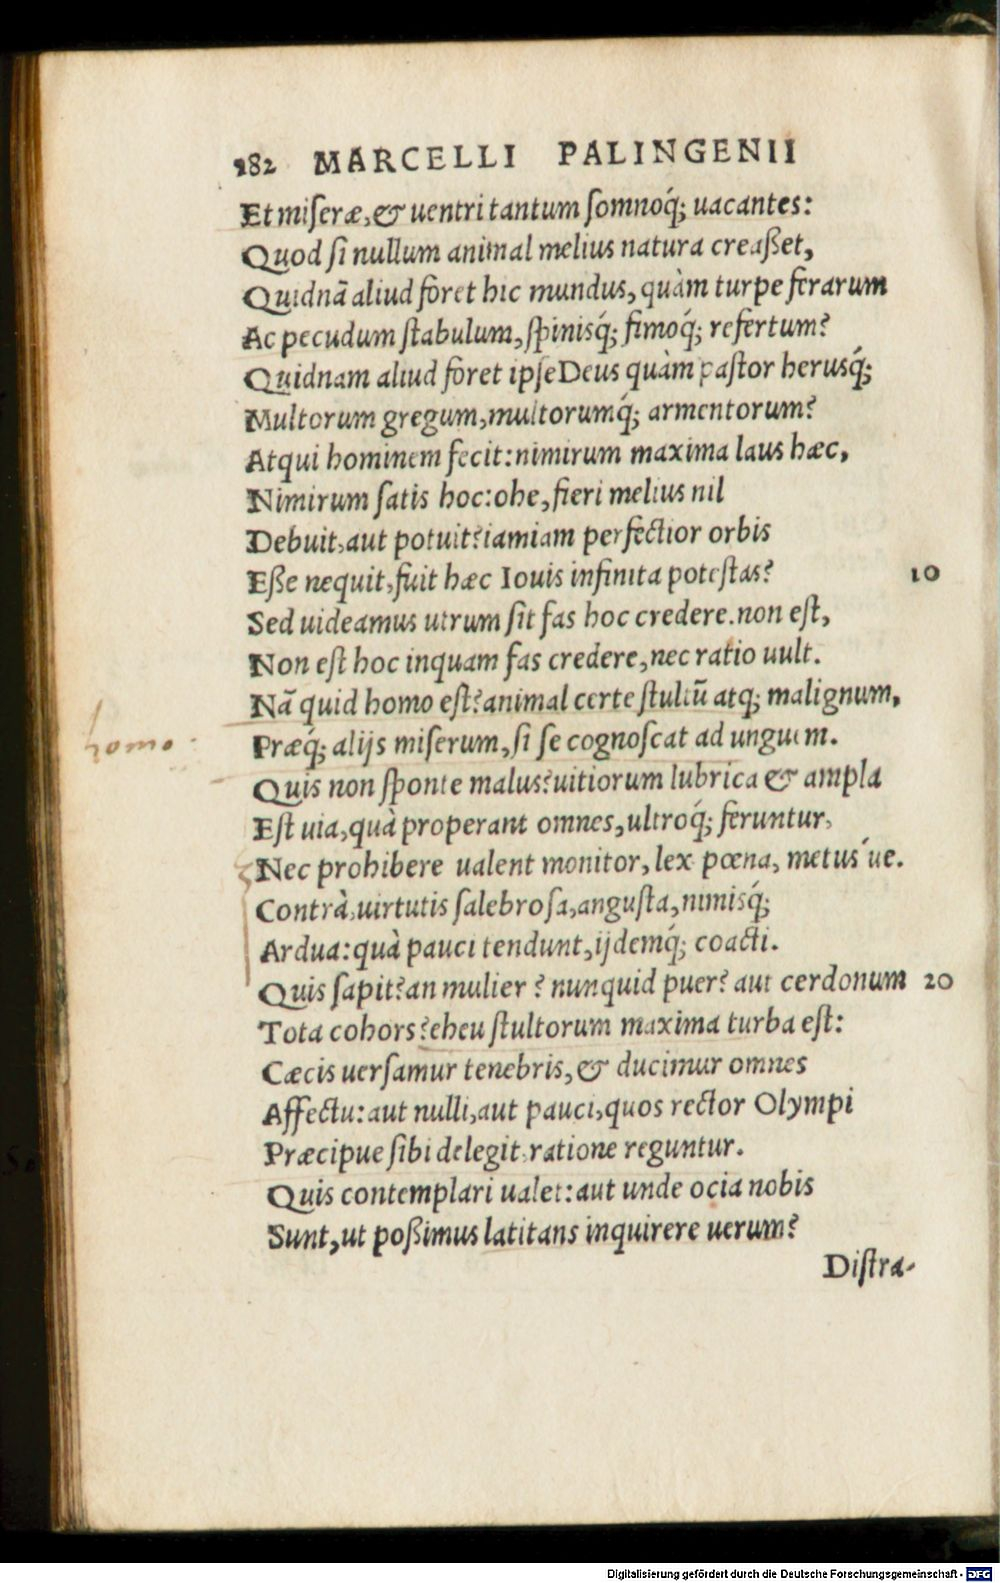 182 MARCELLI PALINGENII
Et miseræ, & uentri tantum somnoq́; uacantes:
Quod si nullum animal melius natura creaßet,
Quidnã aliud foret hic mundus, quàm turpe ferarum
Ac pecudum stabulum, spinisq́; fimoq́; refertum?
Quidnam aliud foret ipse Deus quàm pastor herusq́;
Multorum gregum, multorumq́; armentorum?
Atqui hominem fecit: nimirum maxima laus hæc,
Nimirum satis hoc: ohe, fieri melius nil
Debuit, aut potuit? iamiam perfectior orbis
Eße nequit, fuit hæc Iouis infinita potestas? 10
Sed uideamus utrum sit fas hoc credere. non est,
Non est hoc inquam fas credere, nec ratio uult.
Nã quid homo est? animal certe stultũ atq; malignum,
homo
Præq́; alijs miserum, si se cognoscat ad unguem.
Quis non sponte malus? uitiorum lubrica & ampla
Est uia, quà properant omnes, ultroq́; feruntur,
Nec prohibere ualent monitor, lex pœna, metus´ue.
Contrà, uirtutis salebrosa, angusta, nimisq́;
Ardua: quà pauci tendunt, ijdemq́; coacti.
Quis sapit? an mulier? nunquid puer? aut cerdonum 20
Tota cohors? eheu stultorum maxima turba est:
Cæcis uersamur tenebris, & ducimur omnes
Affectu: aut nulli, aut pauci, quos rector Olympi
Præcipue sibi delegit, ratione reguntur.
Quis contemplari ualet: aut unde ocia nobis
Sunt, ut poßimus latitans inquirere uerum?
Distra-
Digitalisierung gefördert durch die Deutsche Forschungsgemeinschaft - DFG